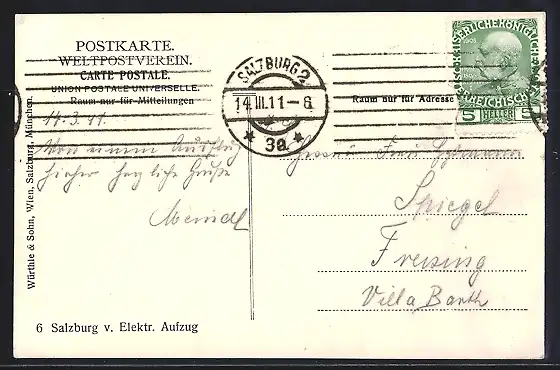 POSTKARTE.
WELTPOSTVEREIN.
CARTE POSTALE.
UNION POSTALE UNIVERSELLE.
Raum nur für Mitteilungen
14.3.11.
Von einem Ausflug
hieher herzliche Grüße
6 Salzburg v. Elektr. Aufzug
Würthle & Sohn, Wien, Salzburg, München.
SALZBURG 2
14.III.11-6
* 3a *
Raum nur für Adresse
1908
5 HELLER 5
Frau
Spiegel
Freising
Villa Barth